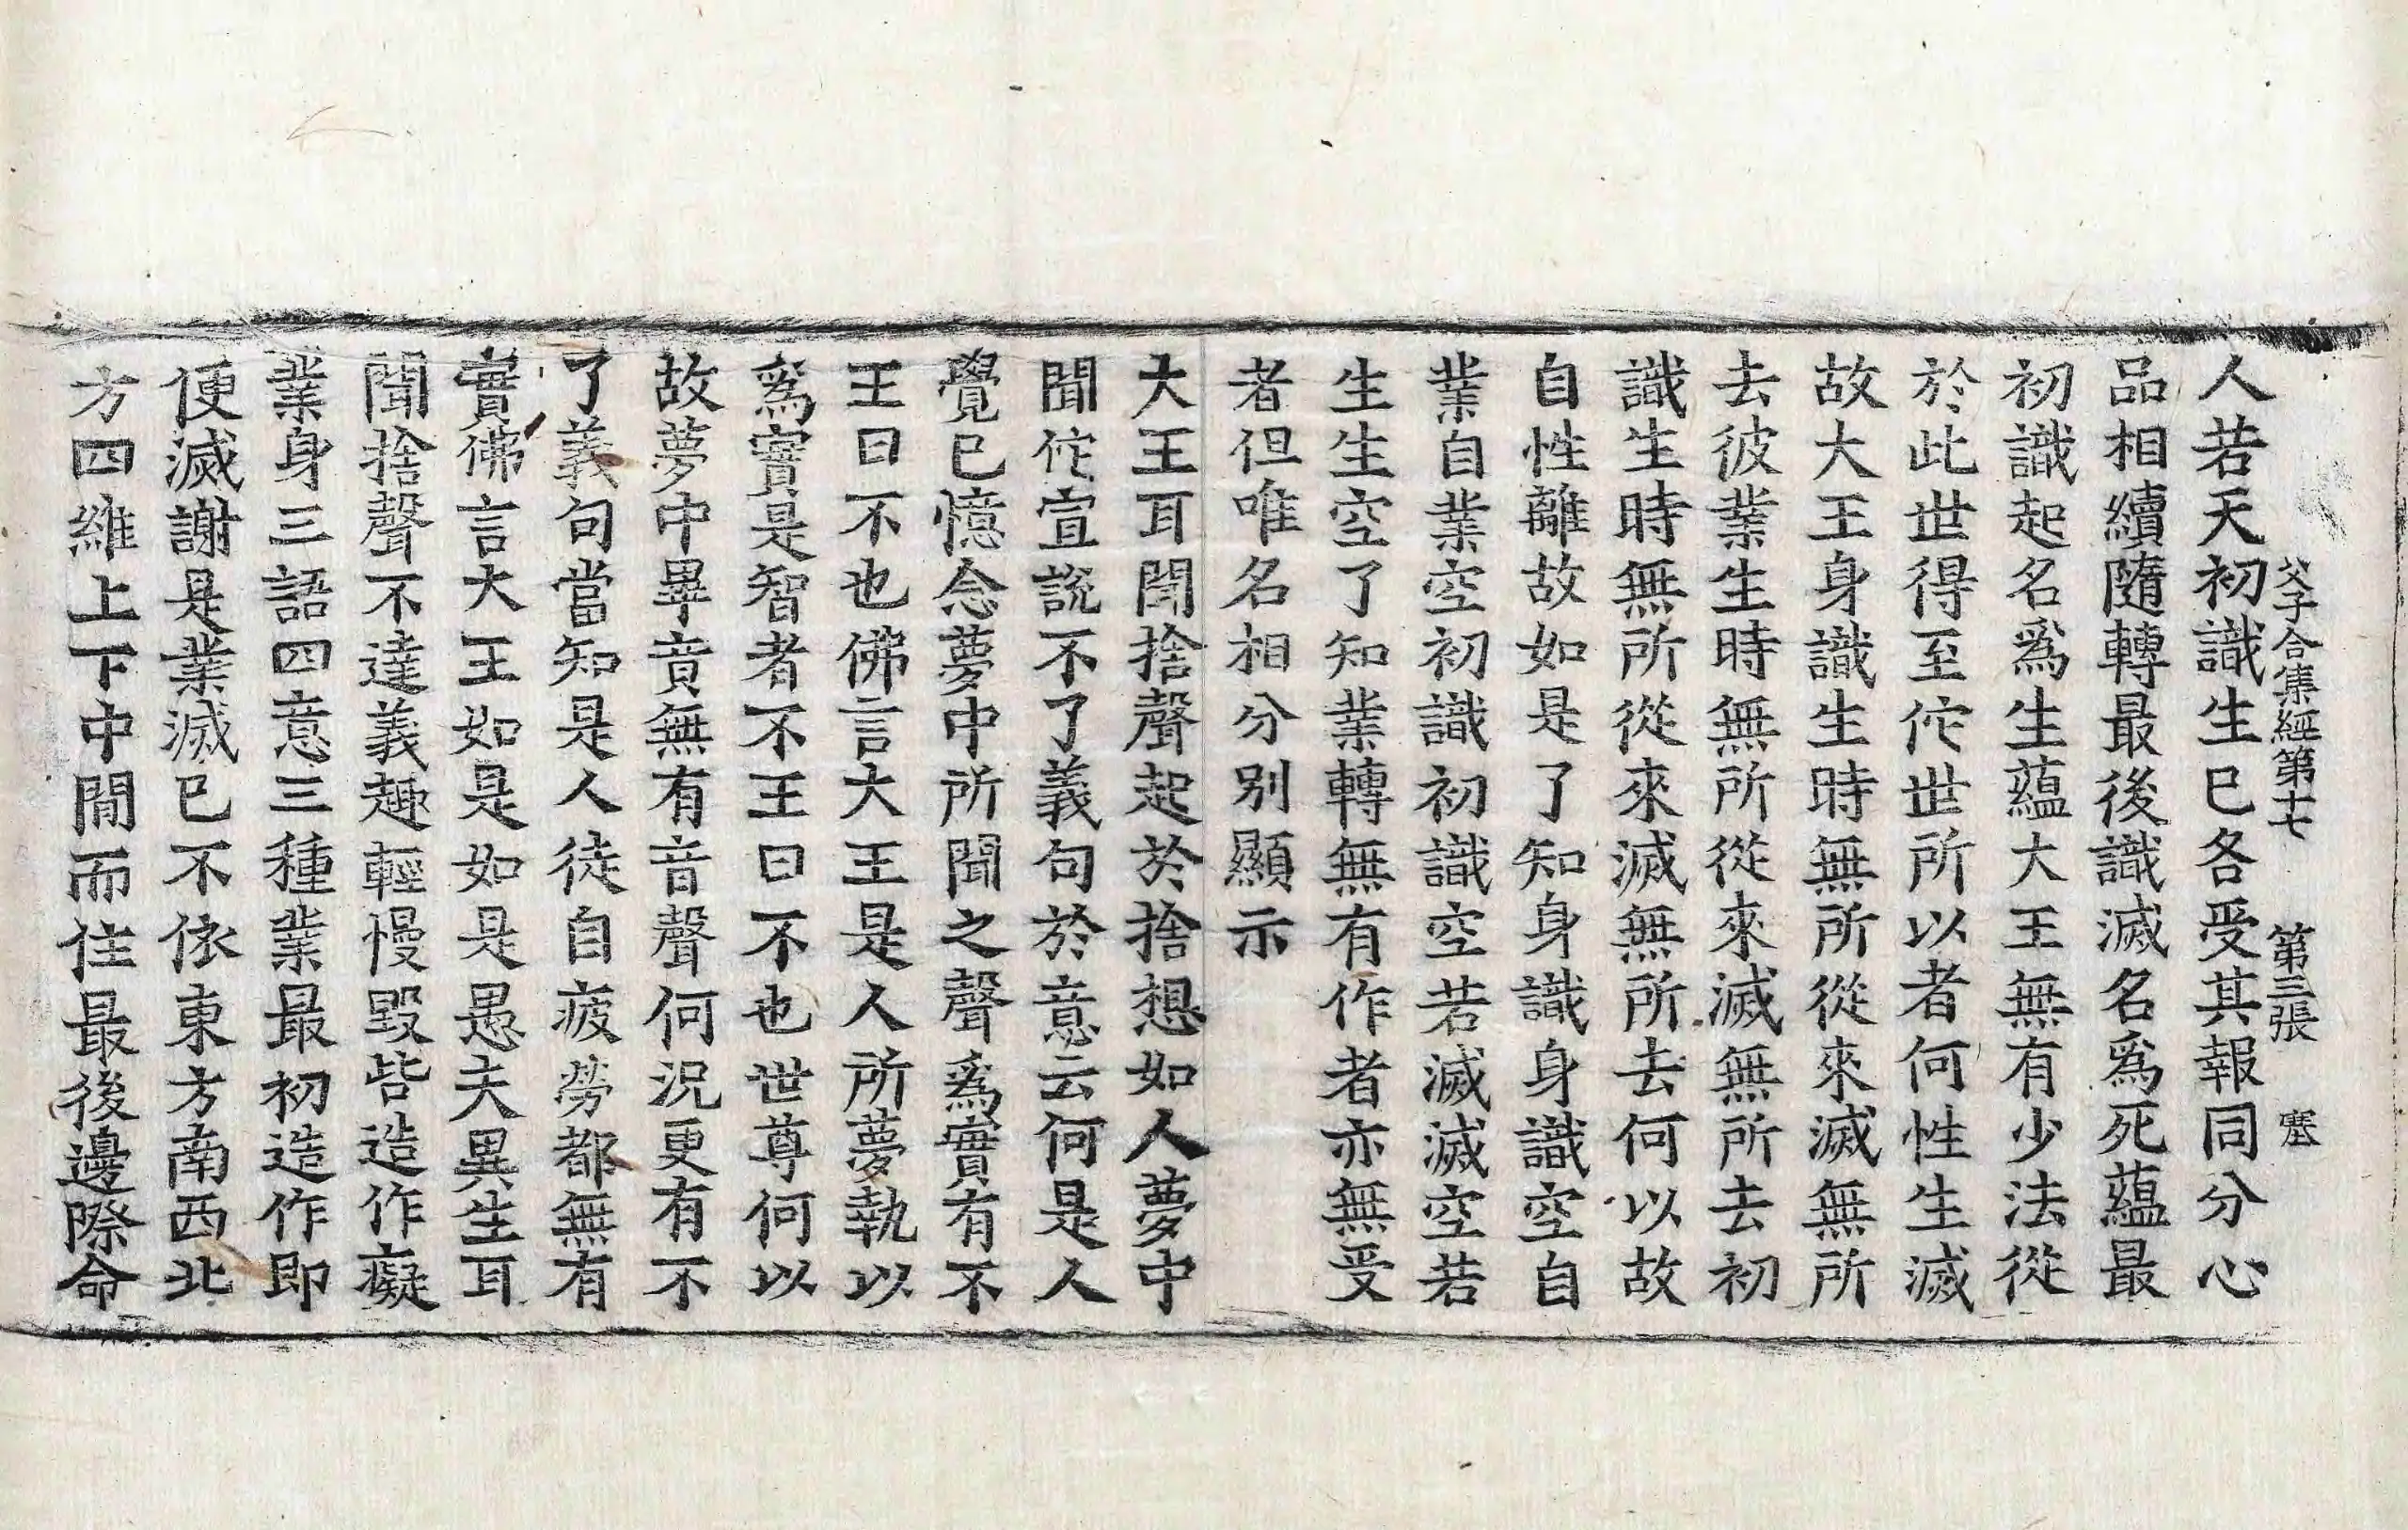 父子合集經第十七 第三張 塞
人若天初識生已各受其報同分心
品相續隨轉最後識滅名爲死蘊最
初識起名爲生蘊大王無有少法從
於此世得至佗世所以者何性生滅
故大王身識生時無所從來滅無所
去彼業生時無所從來滅無所去初
識生時無所從來滅無所去何以故
自性離故如是了知身識身識空自
業自業空初識初識空若滅滅空若
生生空了知業轉無有作者亦無受
者但唯名相分別顯示
大王耳聞捨聲起於捨想如人夢中
聞佗宣說不了義句於意云何是人
覺已憶念夢中所聞之聲爲實有不
王曰不也佛言大王是人所夢執以
爲實是智者不王曰不也世尊何以
故夢中畢竟無有音聲何況更有不
了義句當知是人徒自疲勞都無有
實佛言大王如是如是愚夫異生耳
聞捨聲不達義趣輕慢毀呰造作癡
業身三語四意三種業最初造作即
便滅謝是業滅已不依東方南西北
方四維上下中間而住最後邊際命